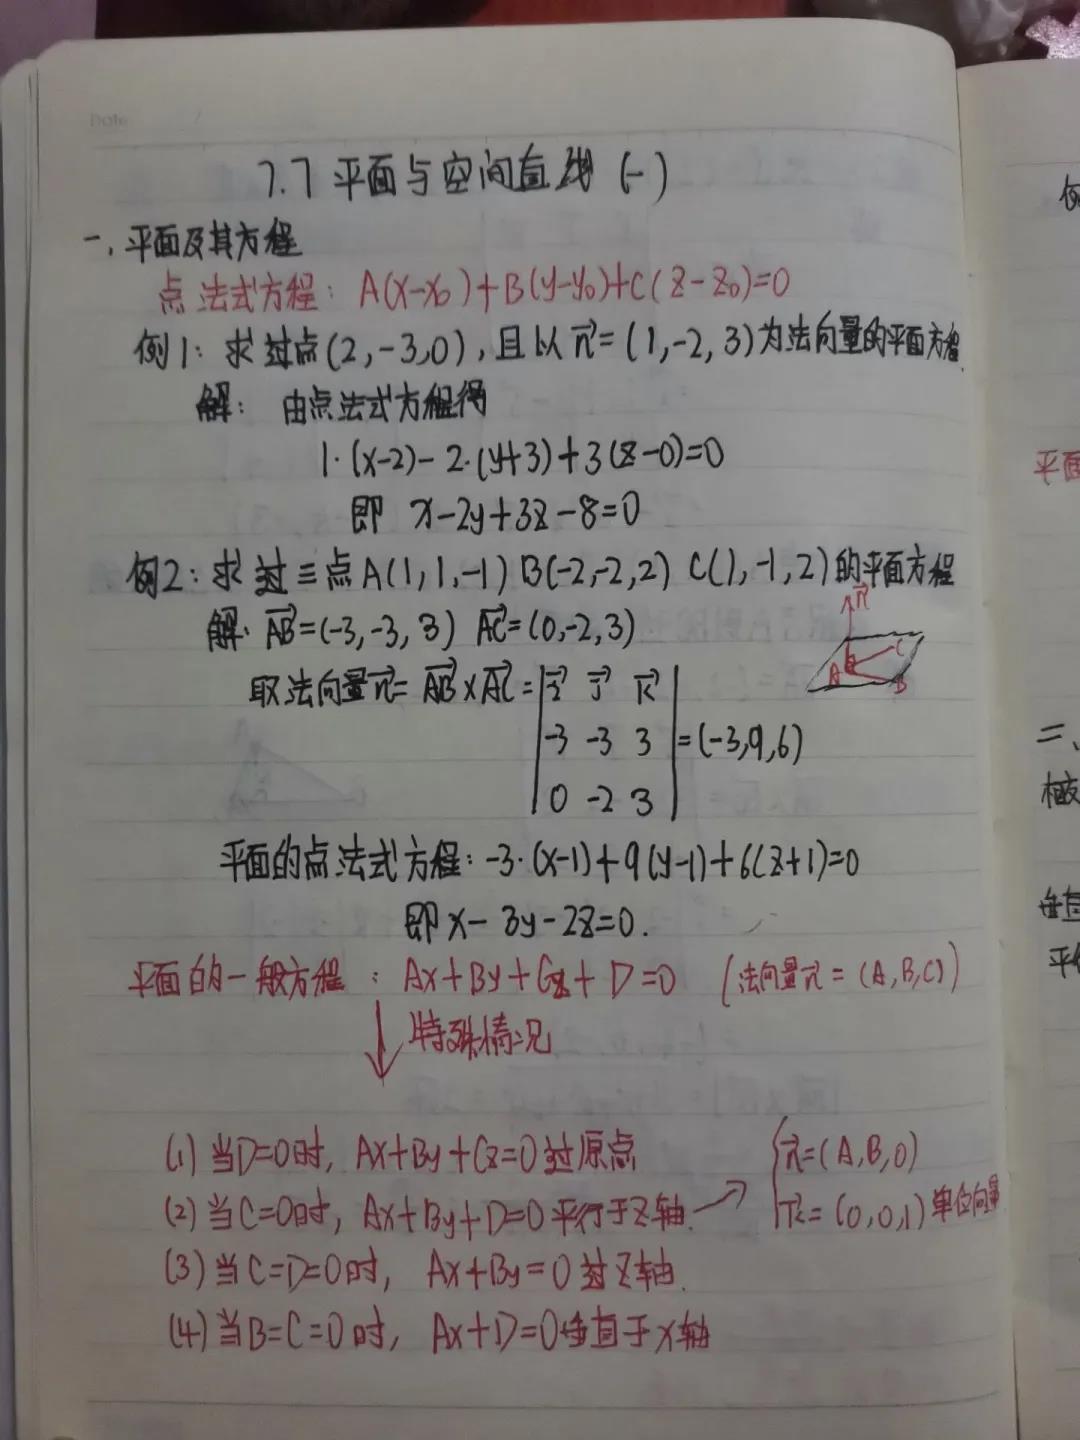 Date
7.7 平面与空间直线 (一)
一、平面及其方程
点法式方程: A(x-x₀)+B(y-y₀)+C(z-z₀)=0
例1: 求过点(2,-3,0), 且以n⃗=(1,-2,3)为法向量的平面方程.
解: 由点法式方程得
1·(x-2)-2·(y+3)+3(z-0)=0
即 x-2y+3z-8=0
例2: 求过三点A(1,1,-1) B(-2,-2,2) C(1,-1,2)的平面方程
解: AB⃗=(-3,-3,3) AC⃗=(0,-2,3)
n⃗
A C
B
取法向量n⃗=AB⃗×AC⃗=| i⃗ j⃗ k⃗ |
| -3 -3 3 |=(-3,9,6)
| 0 -2 3 |
平面的点法式方程: -3·(x-1)+9(y-1)+6(z+1)=0
即x-3y-2z=0.
平面的一般方程: Ax+By+Cz+D=0 (法向量n⃗=(A,B,C))
↓特殊情况
(1) 当D=0时, Ax+By+Cz=0过原点
(2) 当C=0时, Ax+By+D=0平行于z轴. → { n⃗=(A,B,0)
k⃗=(0,0,1)单位向量
(3) 当C=D=0时, Ax+By=0过z轴.
(4) 当B=C=0时, Ax+D=0垂直于x轴
平面
二、
垂直